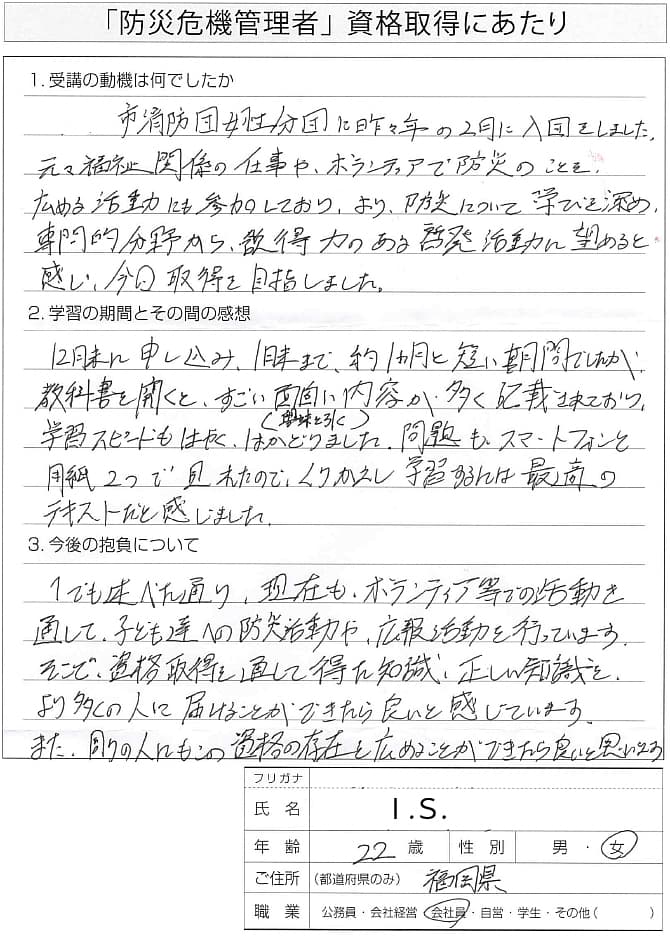 「防災危機管理者」資格取得にあたり
1. 受講の動機は何でしたか
市消防団女性分団に昨々年の2月に入団をしました。
元々福祉関係の仕事や、ボランティアで防災のことを、
広める活動にも参加しており、より、防災について学びを深め、
専門的分野から、説得力のある啓発活動に望めると
感じ、今回取得を目指しました。
2. 学習の期間とその間の感想
12月末に申し込み、1月末まで、約1カ月と短い期間でしたが、
教科書を開くと、すごい面白い内容が多く記載されており、
(興味を引く)
学習スピードもはやく、はかどりました。問題も、スマートフォンと
用紙2つで見れたので、くりかえし学習するには最適の
テキストだと感じました。
3. 今後の抱負について
1でも述べた通り、現在も、ボランティア等での活動を
通して、子ども達への防災活動や、広報活動を行っています。
そこで、資格取得を通して得た知識、正しい知識を、
より多くの人に届けることができたら良いと感じています。
また、周りの人にもこの資格の存在を広めることができたら良いと思います
フリガナ
氏名 I.S.
年齢 22歳 性別 男・女
ご住所 (都道府県のみ) 福岡県
職業 公務員・会社経営・会社員・自営・学生・その他( )